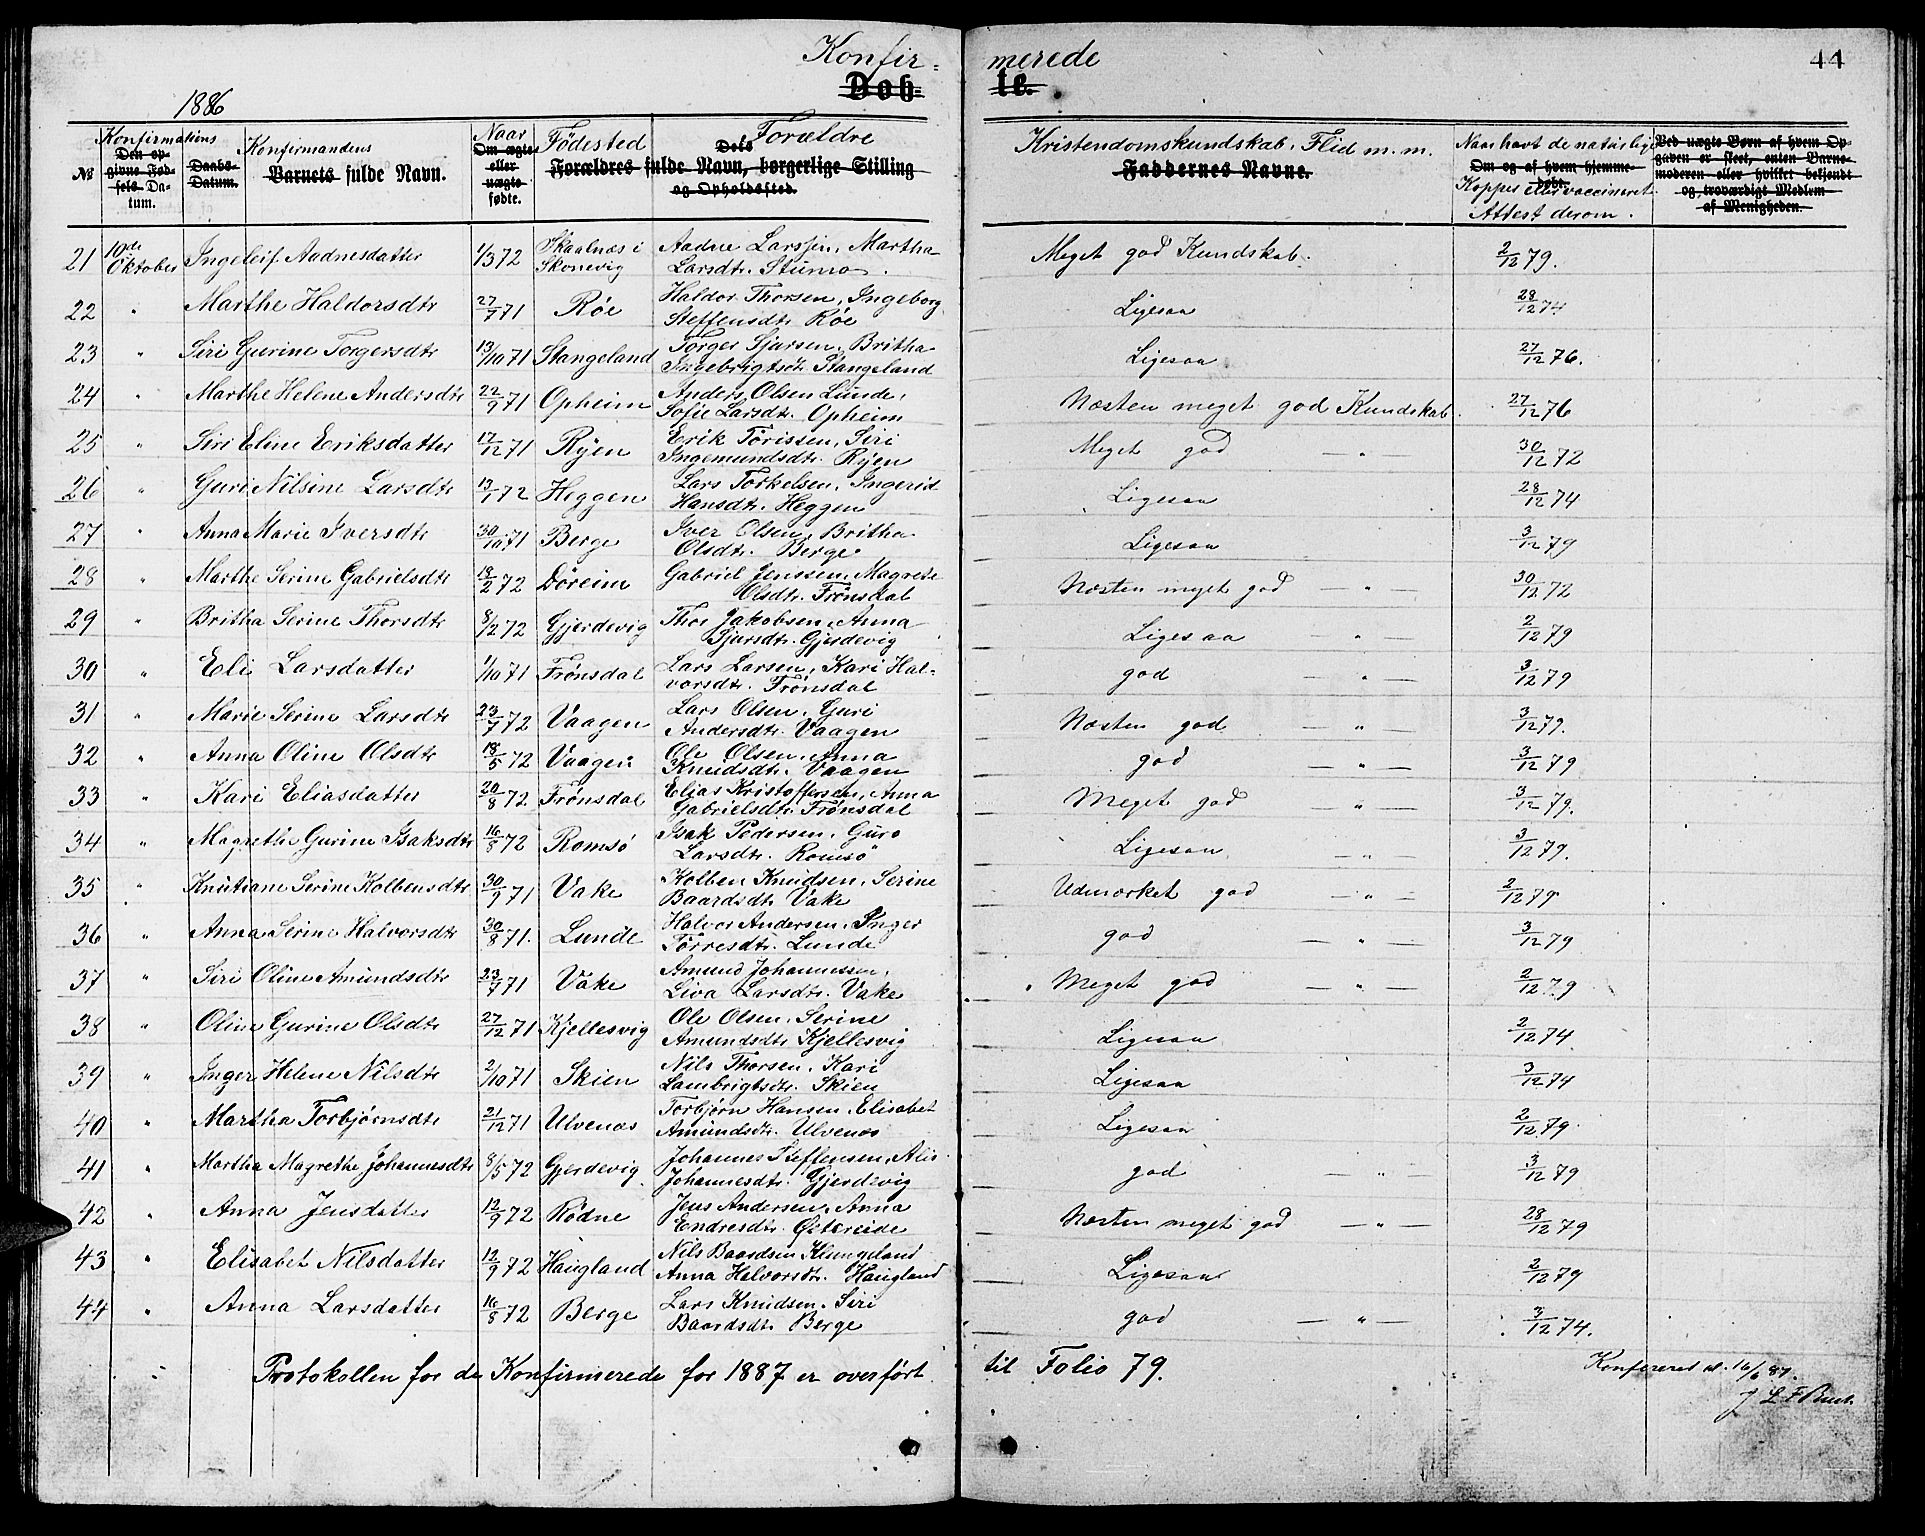 Konfir- merede 44
Døb- te.
1886
№ Konfirmatiens Den opgivne Fødsels Datum. Daabs-Datum. Konfirmandens Barnets fulde Navn. Naar Om ægte eller uægte fødte. Fødested Forældre Dets Forældres fulde Navn, borgerlige Stilling og Opholdssted. Kristendomskundskab, Flid m. m. Faddernes Navne. Naar havt de naturlige Kopper eller vaccineret. Attest derom. Om og af hvem hjemmedøbt. Ved uægte Børn af hvem Opgaven er skeet, enten Barnemoderen eller hvilket bekjendt og troværdigt Medlem af Menigheden.
21 10de Oktober Ingeleif Aadnesdatter 1/3 72 Skaalnæs i Skonevig Aadne Larssen, Martha Larsdtr. Stumo. Meget god Kundskab. 2/12 79.
22 " Marthe Haldorsdtr 27/7 71 Røe Haldor Thorsen, Ingeborg Steffensdtr Røe Ligesaa 28/12 74
23 " Siri Gurine Torgersdtr 13/10 71 Stangeland Torger Sjursen, Britha Ingebrigtsdtr Stangeland Ligesaa 27/12 76.
24 " Marthe Helene Andersdtr 22/9 71 Opheim Anders Olsen Lunde, Sofie Larsdtr. Opheim Næsten meget god Kundskab. 27/12 76
25 " Siri Eline Eriksdatter 17/12 71 Ryen Erik Törissen, Siri Ingemundsdtr. Ryen Meget god — " 30/12 72
26 " Guri Nilsine Larsdtr 13/1 72 Heggen Lars Torkelsen, Ingerid Hansdtr. Heggen Ligesaa 28/12 74
27 " Anna Marie Iversdtr 30/10 71 Berge Iver Olsen, Britha Olsdtr. Berge Ligesaa 3/12 79
28 " Marthe Serine Gabrielsdtr 18/2 72 Döreim Gabriel Jenssen, Magrete Olsdtr. Frönsdal Næsten myget god — " — 30/12 72
29 " Britha Serine Thorsdtr 8/2 72 Gjerdevig Thor Jakobsen, Anna Sjursdtr. Gjerdevig Ligesaa " — 2/12 79
30 " Eli Larsdatter 1/10 71 Frönsdal Lars Larsen, Kari Halvorsdtr. Frönsdal god — " — 3/12 79
31 " Marie Serine Larsdtr 23/7 72 Vaagen Lars Olsen, Guri Andersdtr. Vaagen Næsten god — " — 3/12 79.
32 " Anna Oline Olsdtr 18/5 72 Vaagen Ole Olsen, Anna Knudsdtr. Vaagen god — " — 3/12 79
33 " Kari Eliasdatter 20/8 72 Frönsdal Elias Kristoffersen, Anna Gabrielsdtr Frönsdal Meget god — " — 3/12 79.
34 " Magrethe Gurine Isaksdtr 16/8 72 Romsö Isak Pedersen, Guro Larsdtr. Romsö Ligesaa — " — 3/12 79.
35 " Knutiane Serine Kolbensdtr 30/9 71 Vake Kolben Knudsen, Serine Baardsdtr Vake Udmærket god — " — 2/12 79
36 " Anna Serine Halvorsdtr 30/8 71. Lunde Halvor Andersen, Inger Törresdtr. Lunde god — " — 3/12 79
37 " Siri Oline Amundsdtr 23/7 71 Vake Amund Johannessen, Liva Larsdtr. Vake Meget god — " — 2/12 79
38 " Oline Gurine Olsdtr 27/12 71 Kjellesvig Ole Olsen, Serine Amundsdtr Kjellesvig Ligesaa 2/12 74.
39 " Inger Helene Nilsdtr 2/10 71 Skien Nils Thorsen, Kari Lambrigtsdtr. Skien Ligesaa 3/12 74
40 " Martha Torbjørnsdtr 21/12 71 Ulvenæs Torbjørn Hansen, Elisabet Amundsdtr. Ulvenæs Ligesaa 2/12 79.
41 " Martha Magrethe Johannesdtr 8/5 72 Gjerdevig Johannes Steffensen, Alis Johannesdtr. Gjerdevig god — " — 3/12 79
42 " Anna Jensdatter 12/9 72 Rödne Jens Andersen, Anna Endresdtr. Östereide Næsten meget god — " — 28/12 79
43 " Elisabet Nilsdatter 12/9 72 Haugland Nils Baardsen Klungeland Anna Halvorsdtr. Haugland Ligesaa 2/12 79
44 " Anna Larsdatter 16/8 72 Berge Lars Knudsen, Siri Baardsdtr Berge god — " — 3/12 74.
Protokollen for de Konfirmerede for 1887 er overført til Folio 79.
Konfereret d. 16/6 87.
J L F Buch.